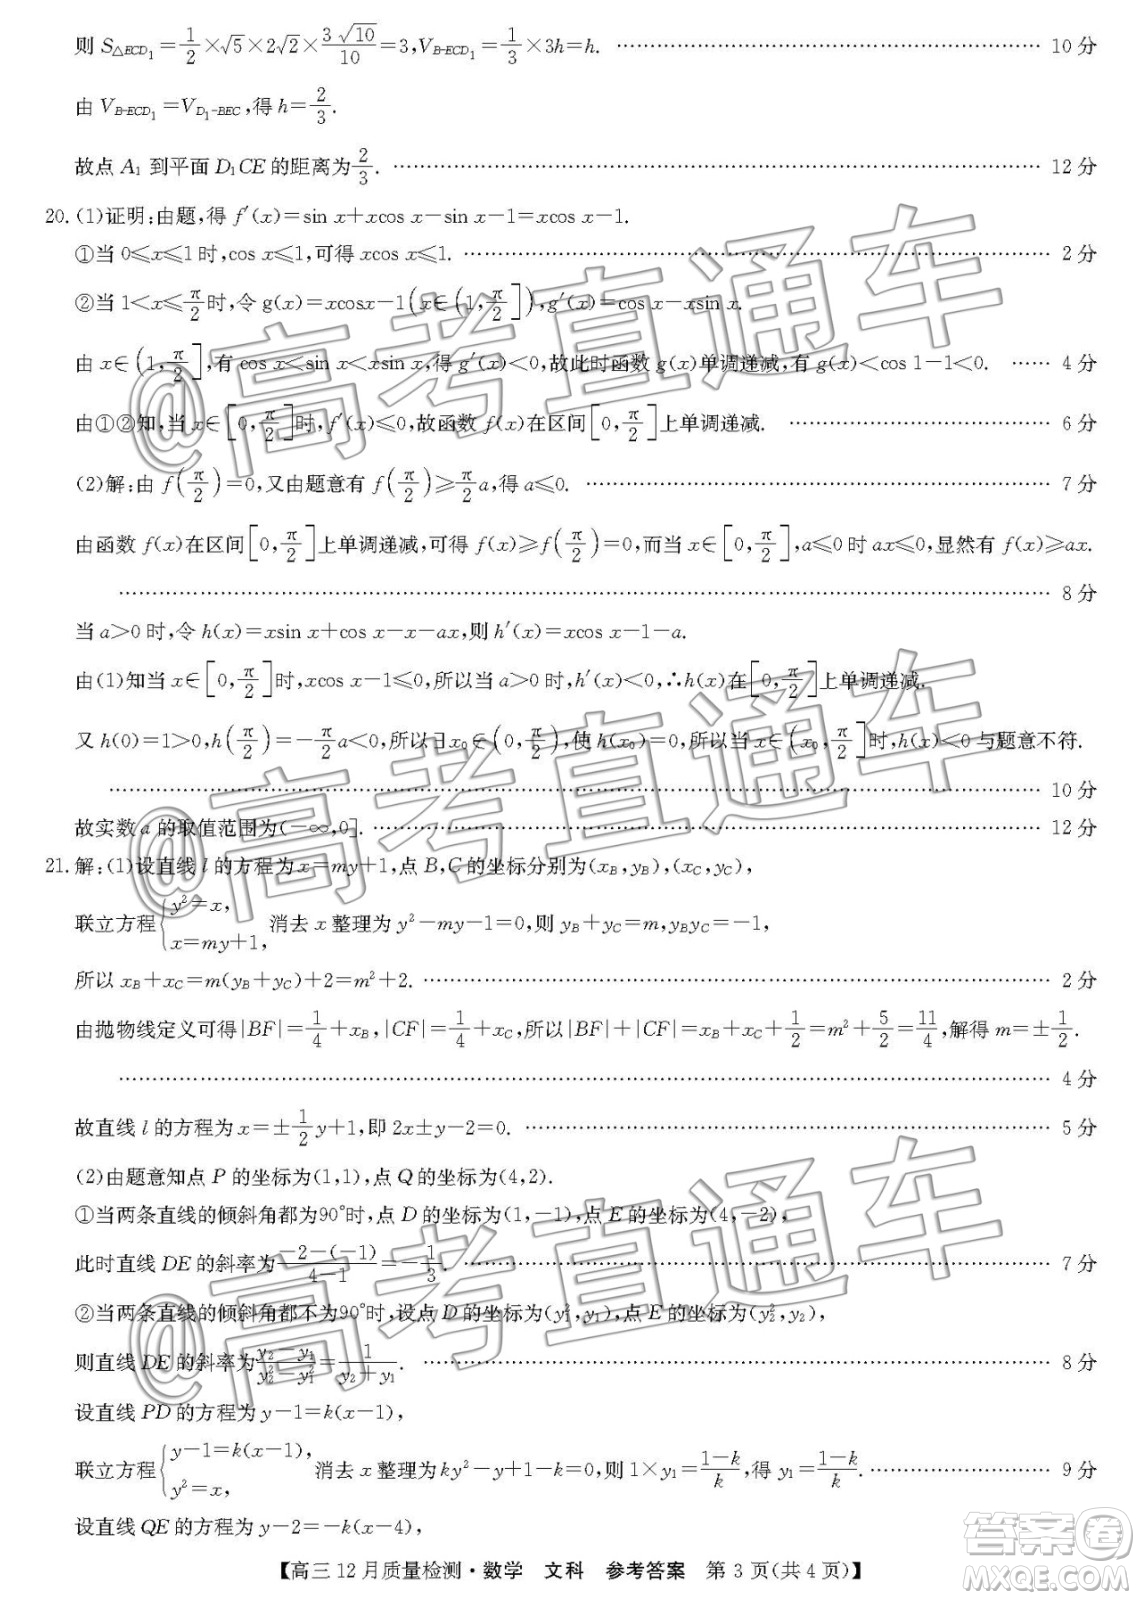 则 S△ECD₁=1/2×√5×2√2×3√10/10=3,V_{B-ECD₁}=1/3×3h=h. …… 10 分
由 V_{B-ECD₁}=V_{D₁-BEC},得 h=2/3.
故点 A₁ 到平面 D₁CE 的距离为 2/3. …… 12 分
20.(1)证明:由题,得 f′(x)=sin x+xcos x-sin x-1=xcos x-1.
①当 0≤x≤1 时,cos x≤1,可得 xcos x≤1. …… 2 分
②当 1<x≤π/2 时,令 g(x)=xcosx-1(x∈(1,π/2]),g′(x)=cos x-xsin x.
由 x∈(1,π/2],有 cos x<sin x<xsin x,得 g′(x)<0,故此时函数 g(x)单调递减,有 g(x)<cos 1-1<0. …… 4 分
由①②知,当 x∈[0,π/2]时,f′(x)≤0,故函数 f(x)在区间[0,π/2]上单调递减. …… 6 分
(2)解:由 f(π/2)=0,又由题意有 f(π/2)≥π/2 a,得 a≤0. …… 7 分
由函数 f(x)在区间[0,π/2]上单调递减,可得 f(x)≥f(π/2)=0,而当 x∈[0,π/2],a≤0 时 ax≤0,显然有 f(x)≥ax.
…… 8 分
当 a>0 时,令 h(x)=xsin x+cos x-x-ax,则 h′(x)=xcos x-1-a.
由(1)知当 x∈[0,π/2]时,xcos x-1≤0,所以当 a>0 时,h′(x)<0,∴h(x)在[0,π/2]上单调递减.
又 h(0)=1>0,h(π/2)=-π/2 a<0,所以∃x₀∈(0,π/2),使 h(x₀)=0,所以当 x∈(x₀,π/2]时,h(x)<0 与题意不符.
…… 10 分
故实数 a 的取值范围为(-∞,0]. …… 12 分
21.解:(1)设直线 l 的方程为 x=my+1,点 B,C 的坐标分别为(x_B,y_B),(x_C,y_C),
联立方程{y²=x, x=my+1, 消去 x 整理为 y²-my-1=0,则 y_B+y_C=m,y_By_C=-1,
所以 x_B+x_C=m(y_B+y_C)+2=m²+2. …… 2 分
由抛物线定义可得|BF|=1/4+x_B,|CF|=1/4+x_C,所以|BF|+|CF|=x_B+x_C+1/2=m²+5/2=11/4,解得 m=±1/2.
…… 4 分
故直线 l 的方程为 x=±1/2 y+1,即 2x±y-2=0. …… 5 分
(2)由题意知点 P 的坐标为(1,1),点 Q 的坐标为(4,2).
①当两条直线的倾斜角都为90°时,点 D 的坐标为(1,-1),点 E 的坐标为(4,-2),
此时直线 DE 的斜率为 -2-(-1)/4-1=-1/3. …… 7 分
②当两条直线的倾斜角都不为90°时,设点 D 的坐标为(y₁²,y₁),点 E 的坐标为(y₂²,y₂),
则直线 DE 的斜率为 y₂-y₁/y₂²-y₁²=1/y₂+y₁. …… 8 分
设直线 PD 的方程为 y-1=k(x-1),
联立方程{y-1=k(x-1), y²=x, 消去 x 整理为 ky²-y+1-k=0,则 1×y₁=1-k/k,得 y₁=1-k/k. …… 9 分
设直线 QE 的方程为 y-2=-k(x-4),
【高三 12 月质量检测·数学 文科 参考答案 第 3 页(共 4 页)】
@高考直通车
@高考直通车
@高考直通车
答案圈
MXQE.COM